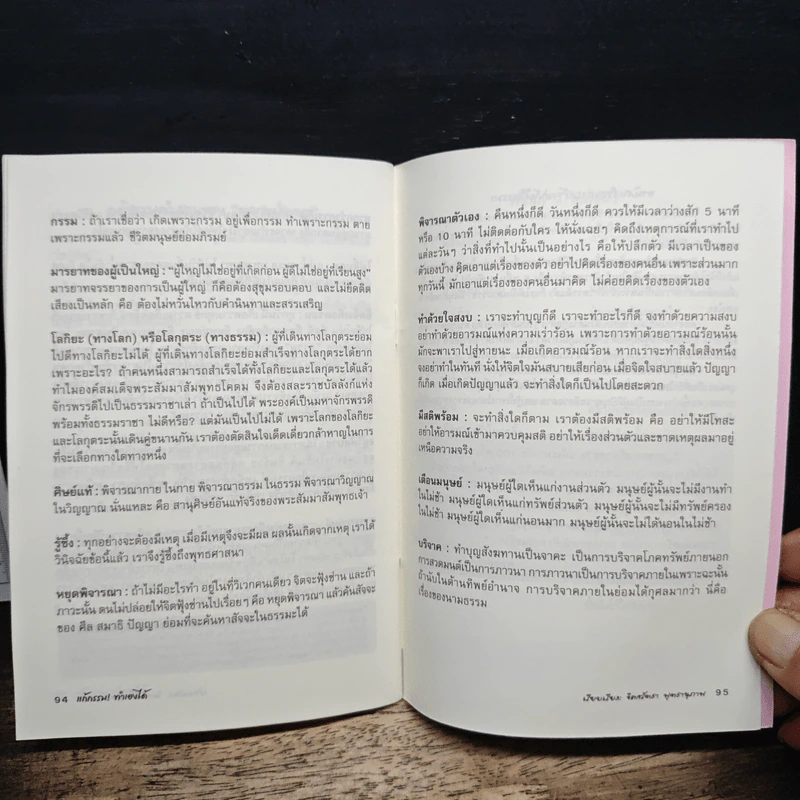 กรรม : ถ้าเราเชื่อว่า เกิดเพราะกรรม อยู่เพื่อกรรม ทำเพราะกรรม ตาย
เพราะกรรมแล้ว ชีวิตมนุษย์ย่อมภิรมย์
มารยาทของผู้เป็นใหญ่ : "ผู้ใหญ่ไม่ใช่อยู่ที่เกิดก่อน ผู้ดีไม่ใช่อยู่ที่เรียนสูง"
มารยาทจรรยาของการเป็นผู้ใหญ่ ก็คือต้องสุขุมรอบคอบ และไม่ยึดติด
เสียงเป็นหลัก คือ ต้องไม่หวั่นไหวกับคำนินทาและสรรเสริญ
โลกิยะ (ทางโลก) หรือโลกุตระ (ทางธรรม) : ผู้ที่เดินทางโลกุตระย่อม
ไปดีทางโลกิยะไม่ได้ ผู้ที่เดินทางโลกิยะย่อมสำเร็จทางโลกุตระได้ยาก
เพราะอะไร? ถ้าคนหนึ่งสามารถสำเร็จได้ทั้งโลกิยะและโลกุตระได้แล้ว
ทำไมองค์สมเด็จพระสัมมาสัมพุทธโคดม จึงต้องสละราชบัลลังก์แห่ง
จักรพรรดิไปเป็นธรรมราชาเล่า ถ้าเป็นไปได้ พระองค์เป็นมหาจักรพรรดิ
พร้อมทั้งธรรมราชา ไม่ดีหรือ? แต่มันเป็นไปไม่ได้ เพราะโลกของโลกิยะ
และโลกุตระนั้นเดินคู่ขนานกัน เราต้องตัดสินใจเด็ดเดี่ยวกล้าหาญในการ
ที่จะเลือกทางใดทางหนึ่ง
ศิษย์แท้ : พิจารณากาย ในกาย พิจารณาธรรม ในธรรม พิจารณาวิญญาณ
ในวิญญาณ นั่นแหละ คือ สานุศิษย์อันแท้จริงของพระสัมมาสัมพุทธเจ้า
รู้ซึ้ง : ทุกอย่างจะต้องมีเหตุ เมื่อมีเหตุจึงจะมีผล ผลนั้นเกิดจากเหตุ เราได้
วินิจฉัยข้อนี้แล้ว เราจึงรู้ซึ้งถึงพุทธศาสนา
หยุดพิจารณา : ถ้าไม่มีอะไรทำ อยู่ในที่วิเวกคนเดียว จิตจะฟุ้งซ่าน และถ้า
ภาวะนั้น ตนไม่ปล่อยให้จิตฟุ้งซ่านไปเรื่อยๆ คือ หยุดพิจารณา แล้วค้นสัจจะ
ของ ศีล สมาธิ ปัญญา ย่อมที่จะค้นหาสัจจะในธรรมะได้
94 แก้กรรม! ทำเองได้
พิจารณาตัวเอง : คืนหนึ่งก็ดี วันหนึ่งก็ดี ควรให้มีเวลาว่างสัก 5 นาที
หรือ 10 นาที ไม่ติดต่อกับใคร ให้นั่งเฉยๆ คิดถึงเหตุการณ์ที่เราทำไป
แต่ละวันๆ ว่าสิ่งที่ทำไปนั้นเป็นอย่างไร คือให้ปลีกตัว มีเวลาเป็นของ
ตัวเองบ้าง คิดเอาแต่เรื่องของตัว อย่าไปคิดเรื่องของคนอื่น เพราะส่วนมาก
ทุกวันนี้ มักเอาแต่เรื่องของคนอื่นมาคิด ไม่ค่อยคิดเรื่องของตัวเอง
ทำด้วยใจสงบ : เราจะทำบุญก็ดี เราจะทำอะไรก็ดี จงทำด้วยความสงบ
อย่าทำด้วยอารมณ์แห่งความเร่าร้อน เพราะการทำด้วยอารมณ์ร้อนนั้น
มักจะพาเราไปสู่หายนะ เมื่อเกิดอารมณ์ร้อน หากเราจะทำสิ่งใดสิ่งหนึ่ง
จงอย่าทำในทันที นั่งให้จิตใจมันสบายเสียก่อน เมื่อจิตใจสบายแล้ว ปัญญา
ก็เกิด เมื่อเกิดปัญญาแล้ว จะทำสิ่งใดก็เป็นไปโดยสะดวก
มีสติพร้อม : จะทำสิ่งใดก็ตาม เราต้องมีสติพร้อม คือ อย่าให้มีโทสะ
อย่าให้อารมณ์เข้ามาควบคุมสติ อย่าให้เรื่องส่วนตัวและขาดเหตุผลมาอยู่
เหนือความจริง
เตือนมนุษย์ : มนุษย์ผู้ใดเห็นแก่งานส่วนตัว มนุษย์ผู้นั้นจะไม่มีงานทำ
ในไม่ช้า มนุษย์ผู้ใดเห็นแก่ทรัพย์ส่วนตัว มนุษย์ผู้นั้นจะไม่มีทรัพย์ครอง
ในไม่ช้า มนุษย์ผู้ใดเห็นแก่นอนมาก มนุษย์ผู้นั้นจะไม่ได้นอนในไม่ช้า
บริจาค : ทำบุญสังฆทานเป็นจาคะ เป็นการบริจาคโภคทรัพย์ภายนอก
การสวดมนต์เป็นการภาวนา การภาวนาเป็นการบริจาคภายในเพราะฉะนั้น
ถ้านับในด้านทิพย์อำนาจ การบริจาคภายในย่อมได้กุศลมากว่า นี่คือ
เรื่องของนามธรรม
95